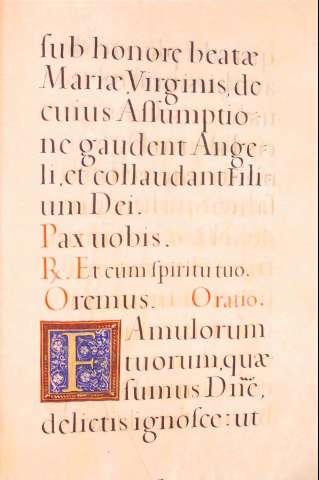 ſub honore beatæ
Mariæ Virginis, de
cuius Aſſumptio-
ne gaudent Ange-
li, et collaudant Fili-
um Dei.
Pax uobis.
℞. Et cum ſpiritu tuo.
Oremus. Oratio.
FAmulorum
tuorum, quæ
ſumus Dñe,
delictis ignoſce: ut